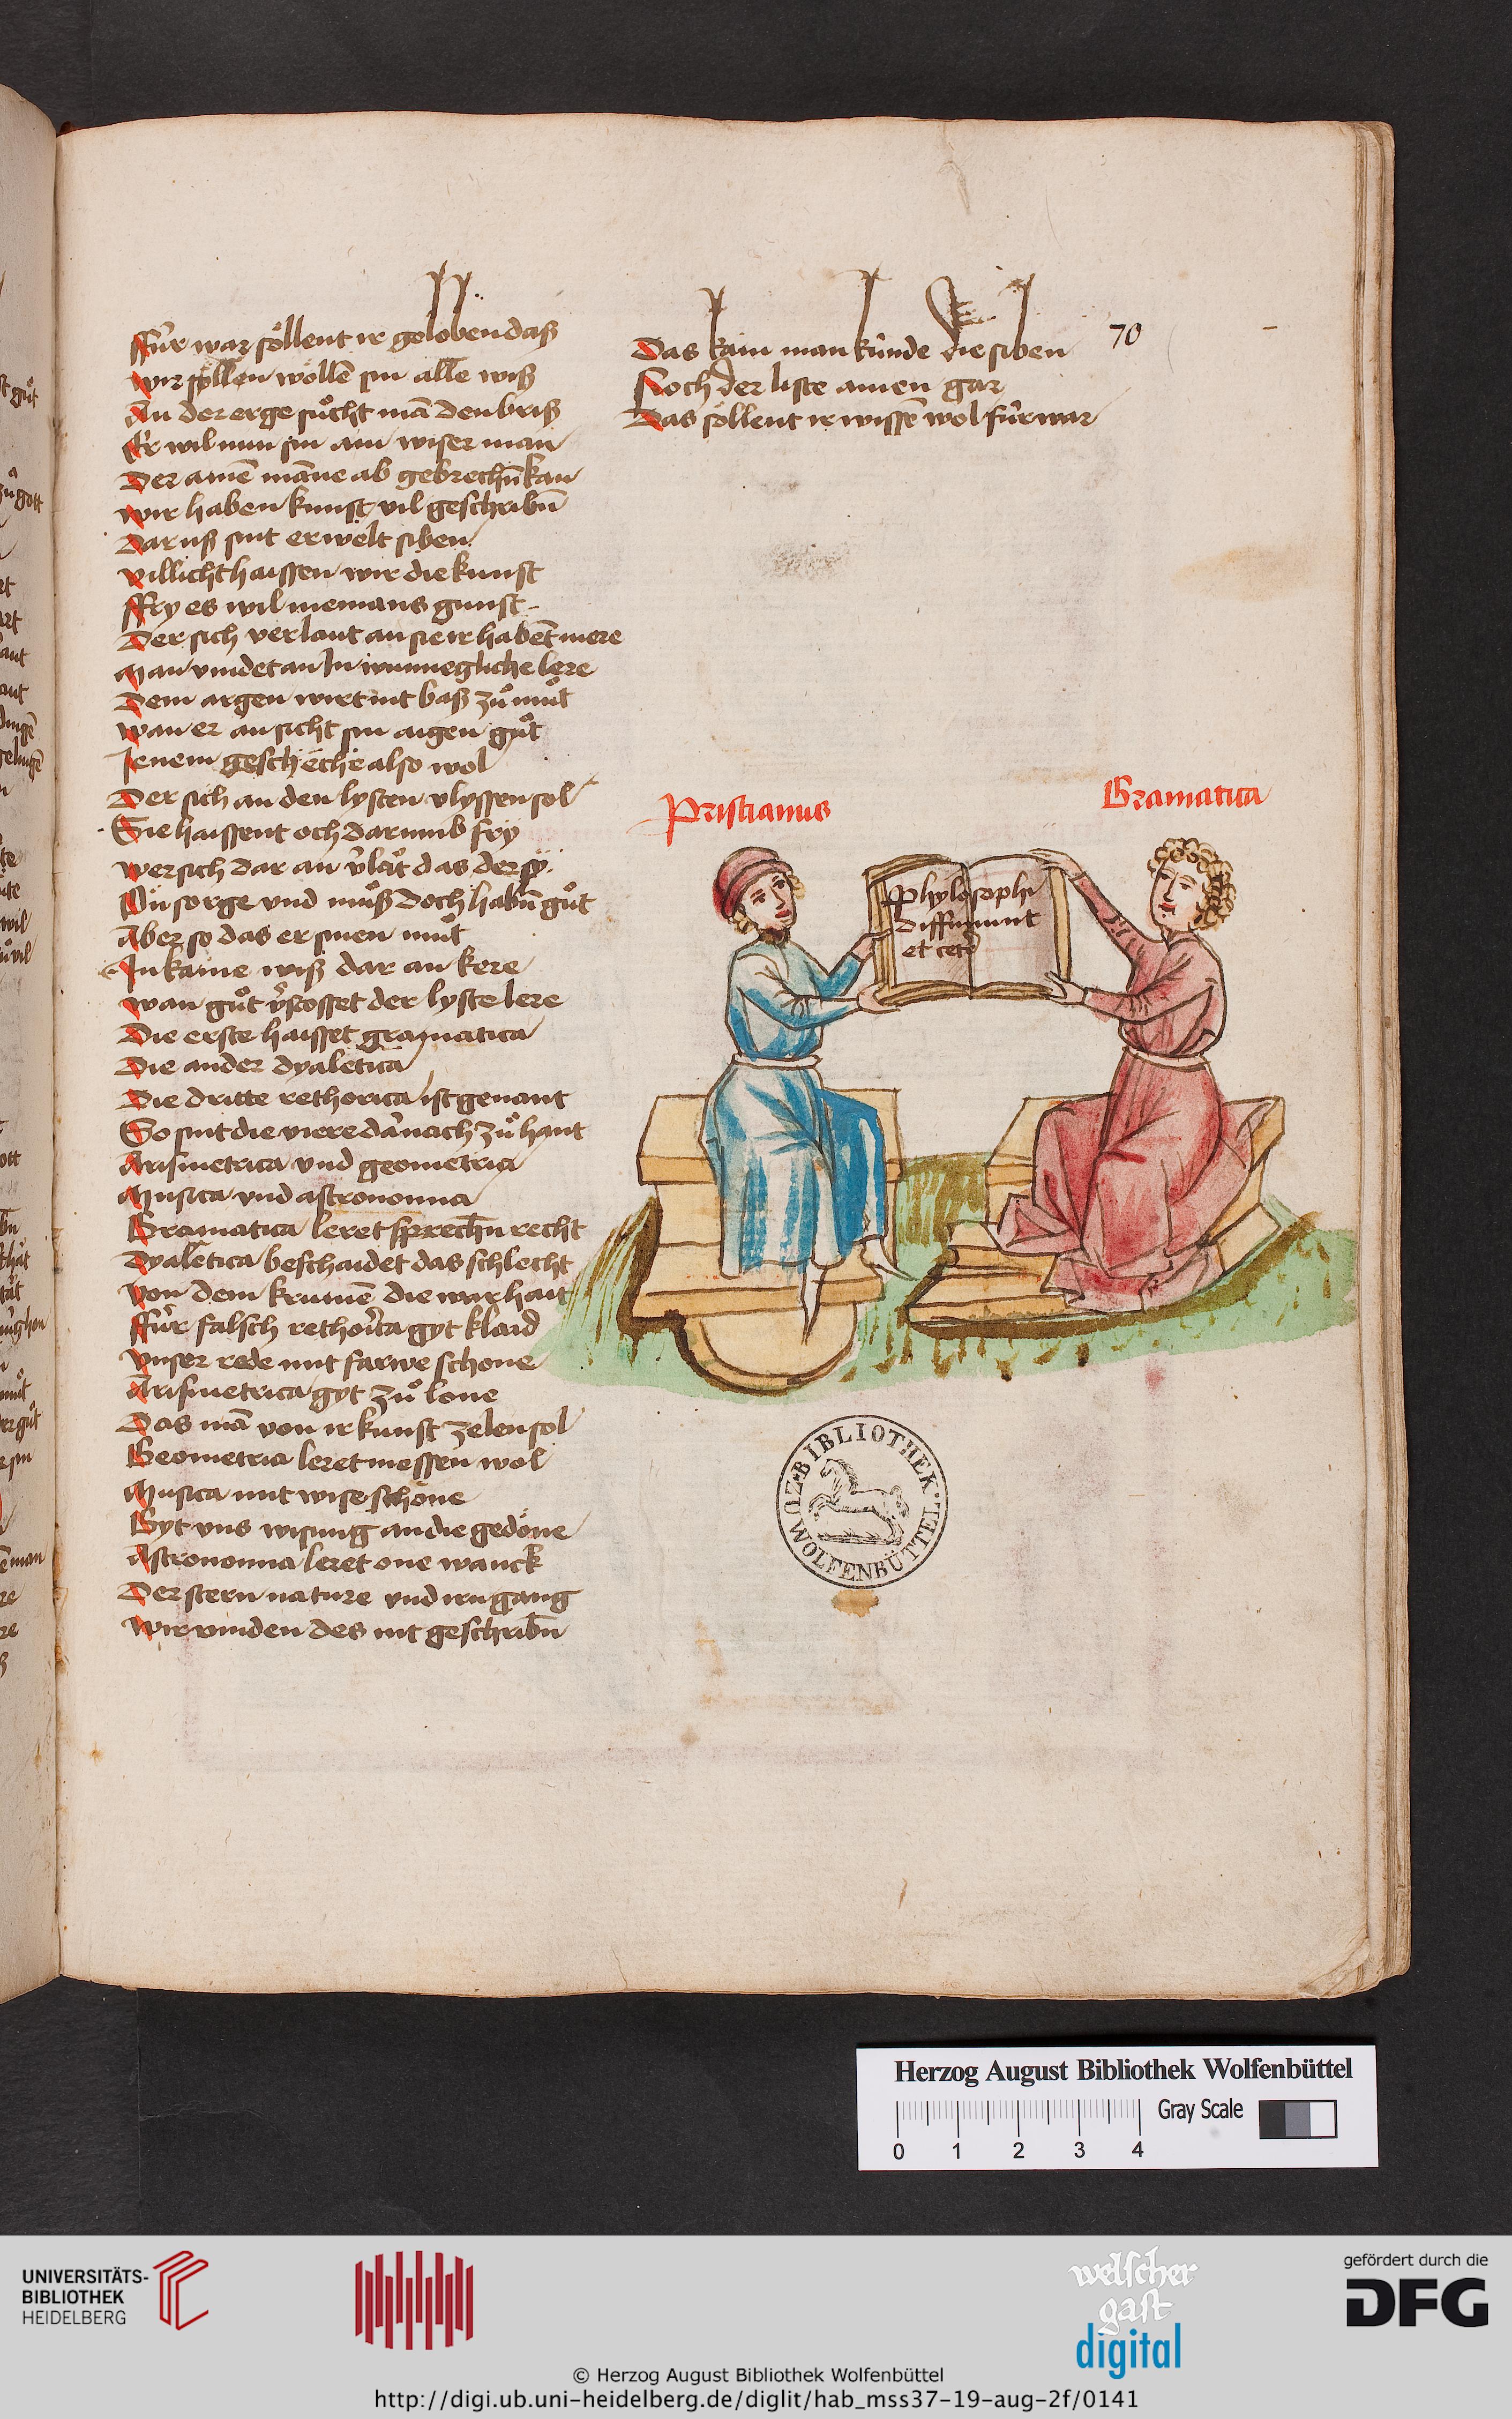 Für war söllent ir geloben das
wir söllen wöllē sin alle wiß
An der erge sůcht mā den briß
Er wil nun sin ain wiser man
Der ainē māne ab gebrechn̄ kan
wir haben kunst vil geschribn̄
Dar uß sint erwelt siben
villicht haissen wir die kunst
ffry es wil niemans gunst
Der sich verlant an sie ir habēt mere
Man vindet an In wunnegliche lere
Dem argen wirt nit baß zů můt
wan er an sicht sin aigen gůt
Jenem geschēche also wol
Der sich an den lysten vlyssen sol
Sie haissent och darumb fry
wer sich dar an v̓lāt das der sy
On sorge vnd můß doch habn̄ gůt
Aber so das er sinen můt
In kaine wiß dar an kere
wan gůt v̓stosset der lyste lere
Die erste haisset gramatica
Die ander dyaletica
Die dritte rethorica ist genant
So sint die viere dar nach zů hant
Arismetrica vnd geometria
Musica vnd astronomia
Gramatica leret sprechn̄ recht
Dyaletica beschaidet das schlecht
von dem krumē die warhait
ffür falsch rethorica gyt klaid
vnser rede mit farwe schone
Arismetrica gyt zů lone
Das mā von ir kunst zelen sol
Geometria leret messen wol
Musica mit wise schöne
Gyt vns wisung an die gedöne
Astronomia leret one wanck
Der stern nature vnd irn gang
Wir vinden des nit geschribn̄
70
Das kain man kunde die siben
Noch der liste ainen gar
Das söllent ir wissē wol für war
Pristianus
Gramatica
Phylosophi
diffiniunt
et cetr̄
BIBLIOTHEK
WOLFENBÜTTEL
Herzog August Bibliothek Wolfenbüttel
Gray Scale
0 1 2 3 4
UNIVERSITÄTS-
BIBLIOTHEK
HEIDELBERG
welscher
gast
digital
gefördert durch die
DFG
© Herzog August Bibliothek Wolfenbüttel
http://digi.ub.uni-heidelberg.de/diglit/hab_mss37-19-aug-2f/0141